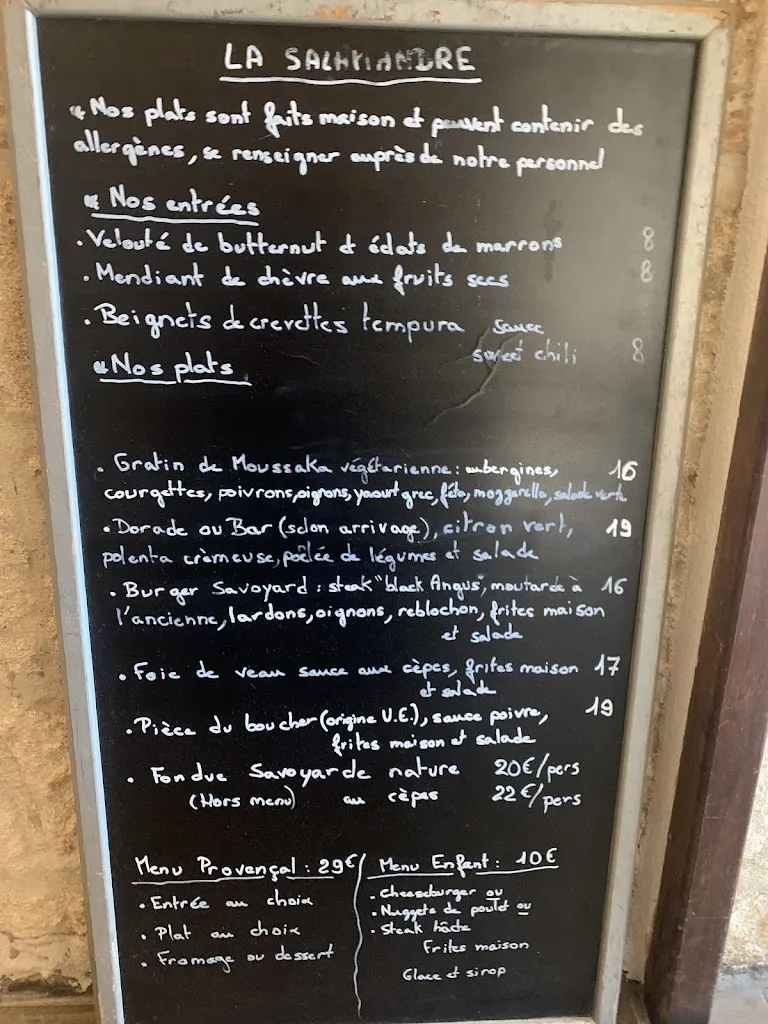 LA SALAMANDRE
* Nos plats sont faits maison et peuvent contenir des
allergènes, se renseigner auprès de notre personnel
* Nos entrées
. Velouté de butternut et éclats de marrons 8
. Mendiant de chèvre aux fruits secs 8
. Beignets de crevettes tempura sauce
sweet chili 8
* Nos plats
. Gratin de Moussaka végétarienne : aubergines, 16
courgettes, poivrons, oignons, yaourt grec, féta, mozzarella, salade verte
. Dorade ou Bar (selon arrivage), citron vert, 19
polenta crèmeuse, poêlée de légumes et salade
. Burger Savoyard : steak "black Angus", moutarde à 16
l'ancienne, lardons, oignons, reblochon, frites maison
et salade
. Foie de veau sauce aux cèpes, frites maison 17
et salade
. Pièce du boucher (origine U.E.), sauce poivre, 19
frites maison et salade
. Fondue Savoyarde nature 20€/pers
(Hors menu) aux cèpes 22€/pers
Menu Provençal : 29€
. Entrée au choix
. Plat au choix
. Fromage ou dessert
Menu Enfant : 10€
. Cheeseburger ou
. Nuggets de poulet ou
. Steak hâché
Frites maison
Glace et sirop